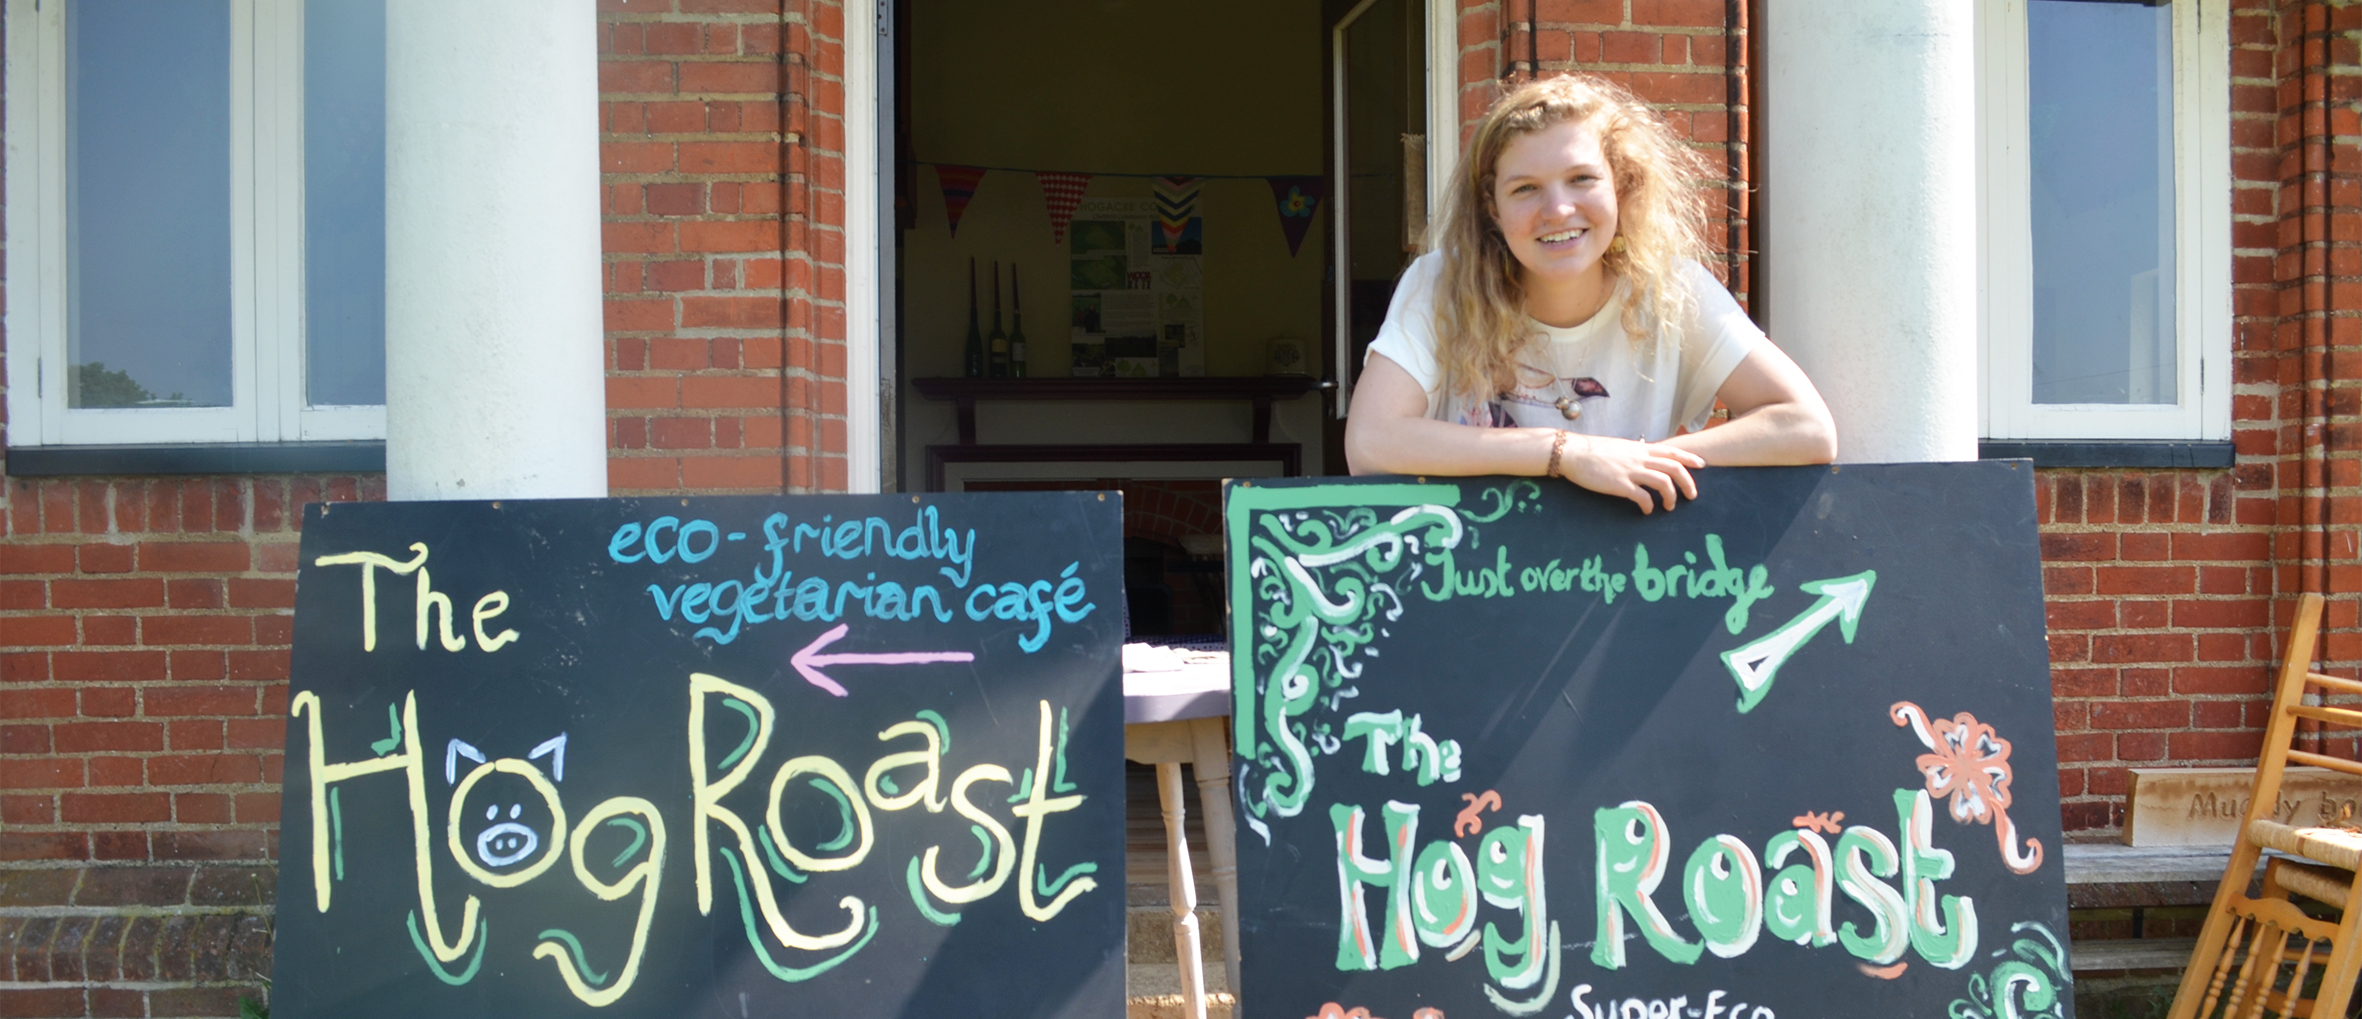 HOGACRE CO
The
eco-friendly
vegetarian café
Hog Roast
Just over the bridge
The
Hog Roast
Super-Eco
Muddy bo